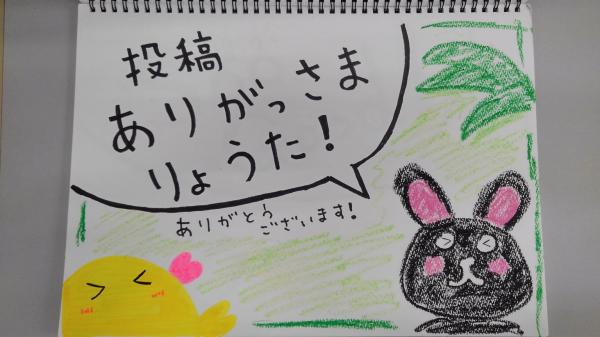 投稿
ありがっさま
りょうた！
ありがとう
ございます！